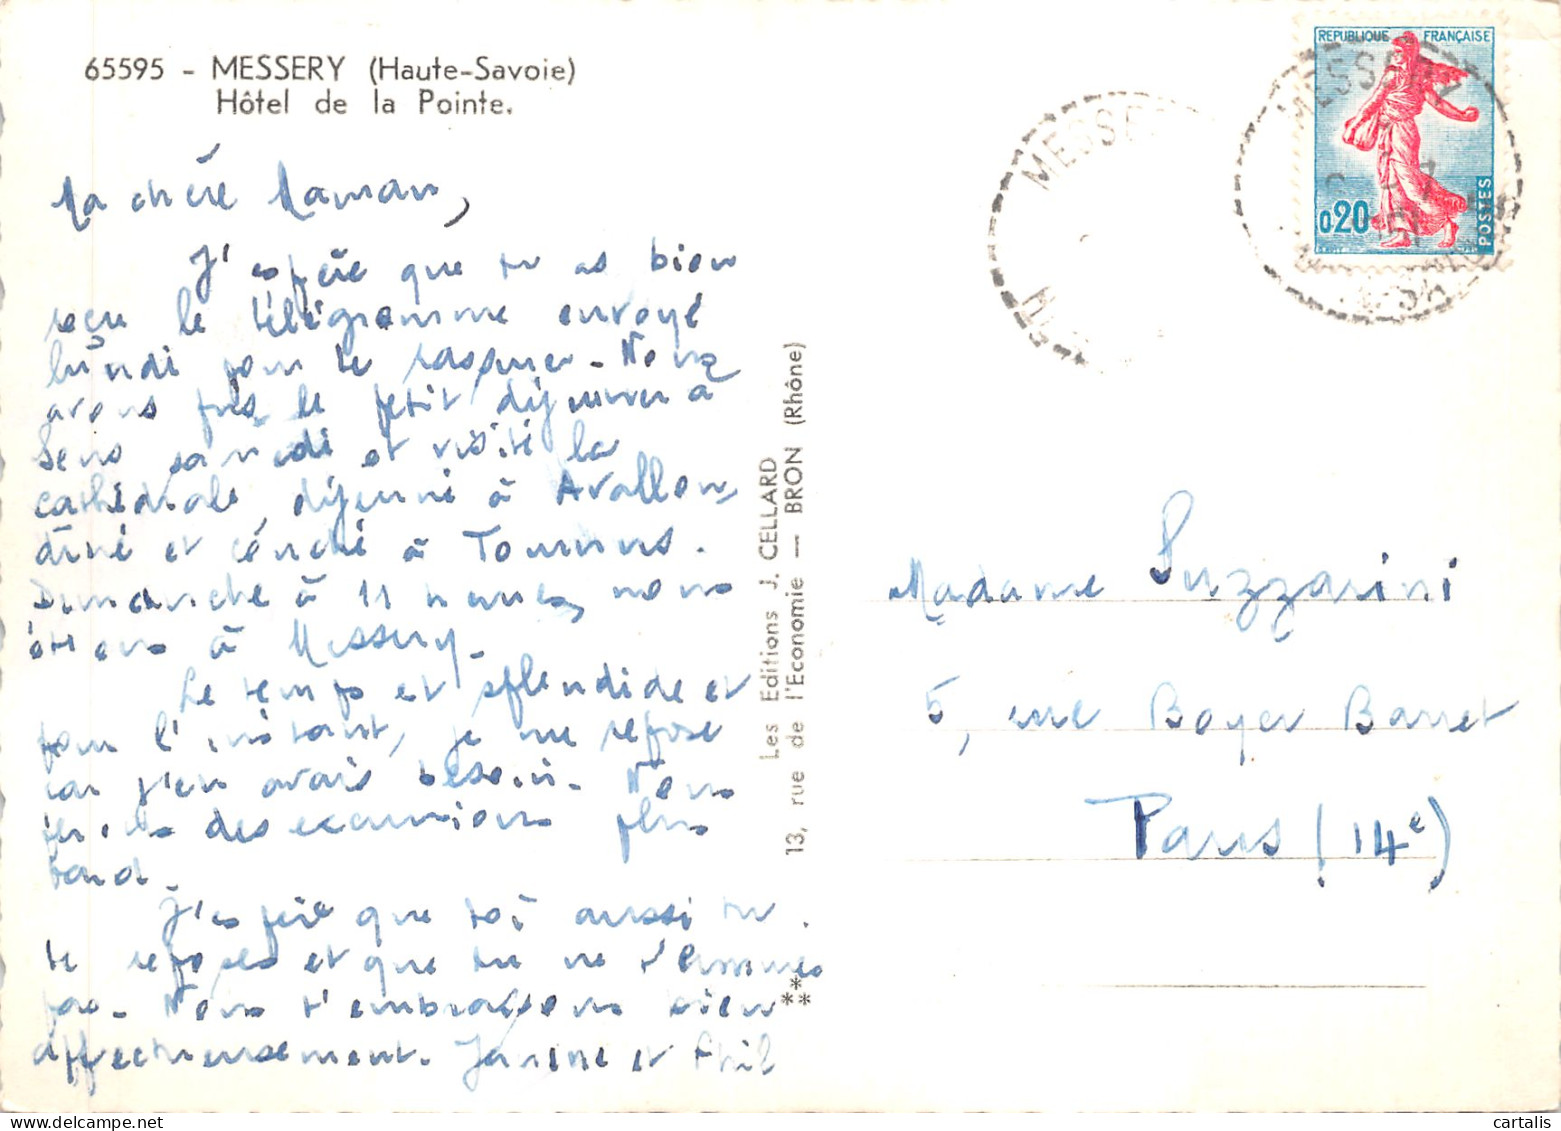 65595 - MESSERY (Haute-Savoie)
Hôtel de la Pointe.
Ma chère Maman,
J'espère que tu as bien
reçu le télégramme envoyé
lundi pour te rassurer - Nous
avons pris le petit déjeuner à
Sens samedi et visité la
cathédrale, déjeuné à Avallon,
dîné et couché à Tournus.
Dimanche à 11 heures, nous
étions à Messery.
Le temps est splendide et
pour l'instant, je me repose
car j'en avais besoin. Nous
ferons des excursions plus
tard.
J'espère que toi aussi tu
te reposes et que tu ne t'ennuies
pas. Nous t'embrassons bien
affectueusement. Janine et Phil
Les Editions J. CELLARD
13, rue de l'Economie — BRON (Rhône)
***
REPUBLIQUE FRANÇAISE
0,20
POSTES
MESSERY
MESSERY
Madame Suzzarini
5, rue Boyer Barret
Paris (14e)
cartalis